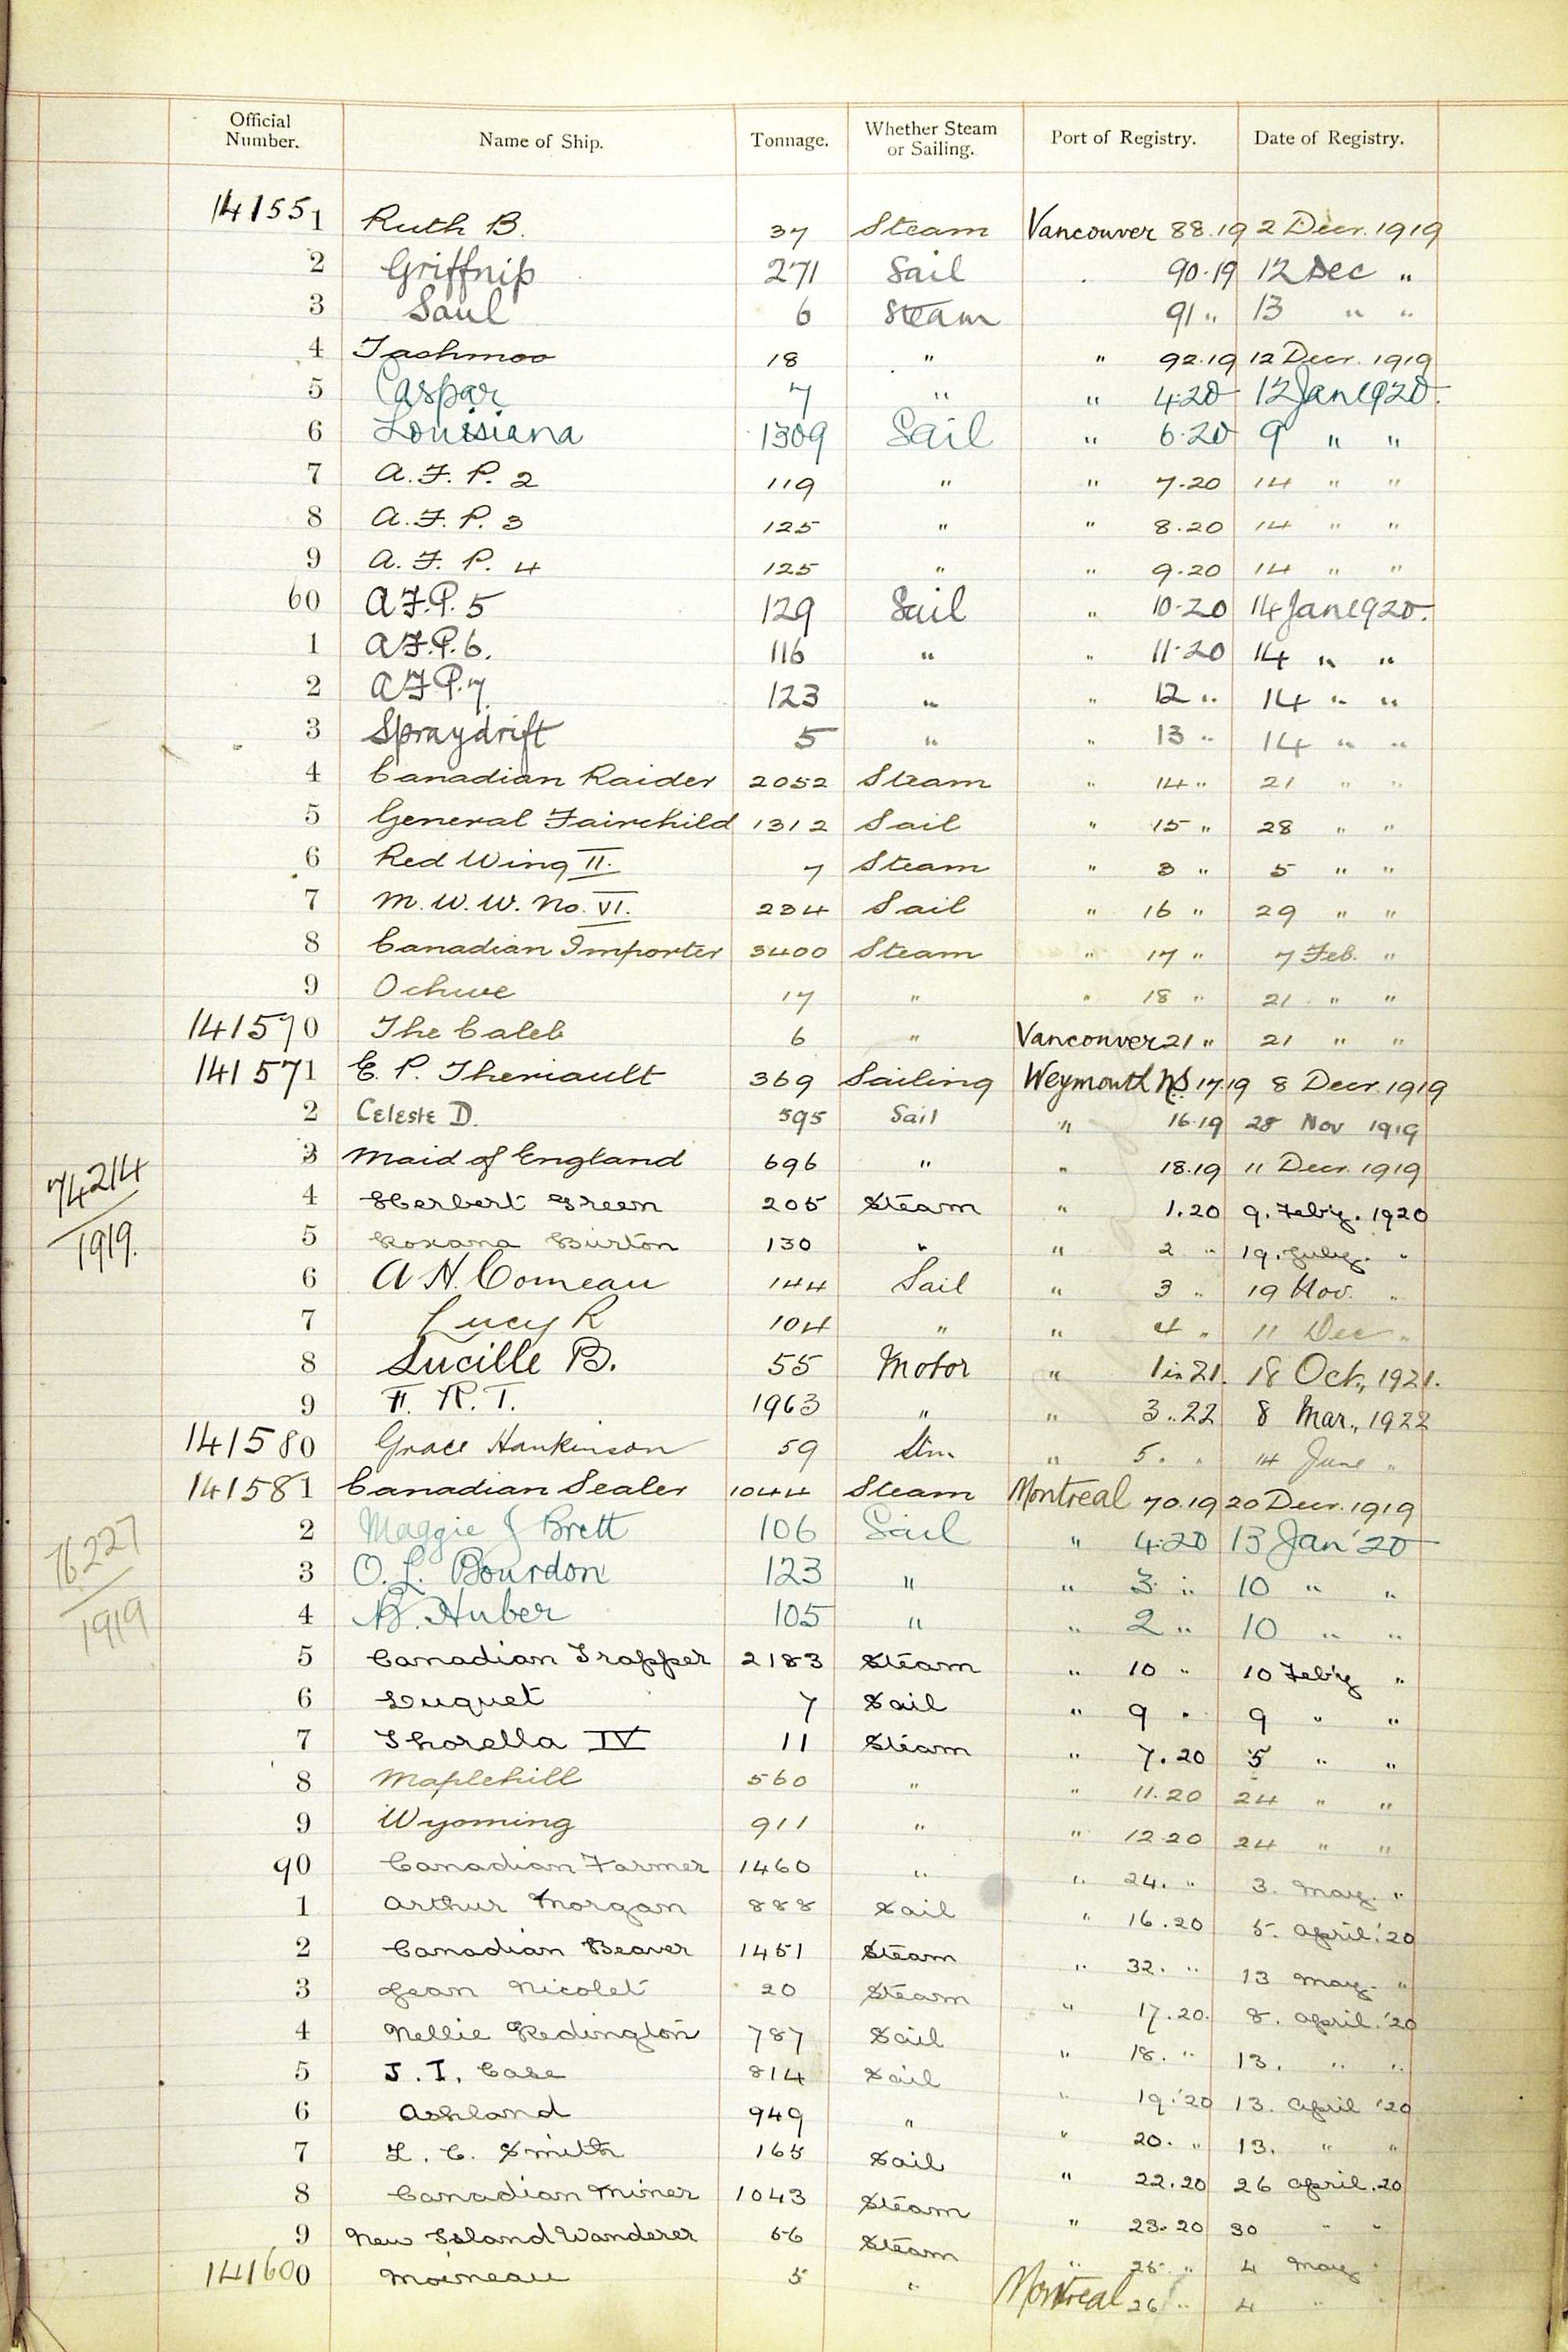 Official Number. Name of Ship. Tonnage. Whether Steam or Sailing. Port of Registry. Date of Registry.
141551 Ruth B. 37 Steam Vancouver 88.19 2 Decr. 1919
2 Griffnip 271 Sail . 90.19 12 Dec "
3 Saul 6 Steam 91 " 13 " "
4 Tashmoo 18 " " 92.19 12 Decr. 1919
5 Caspar 7 " " 4.20 12 Jan 1920.
6 Louisiana 1309 Sail " 6.20 9 " "
7 A.F.P. 2 119 " " 7.20 14 " "
8 A.F.P. 3 125 " " 8.20 14 " "
9 A.F.P. 4 125 " " 9.20 14 " "
60 A.F.P. 5 129 Sail " 10.20 14 Jan 1920.
1 A.F.P. 6. 116 " " 11.20 14 " "
2 A.F.P. 7 123 " " 12 " 14 " "
3 Spraydrift 5 " " 13 " 14 " "
4 Canadian Raider 2052 Steam " 14 " 21 " "
5 General Fairchild 1312 Sail " 15 " 28 " "
6 Red Wing II. 7 Steam " 3 " 5 " "
7 M.W.W. No. VI. 234 Sail " 16 " 29 " "
8 Canadian Importer 3400 Steam " 17 " 7 Feb. "
9 Ochwe 17 " " 18 " 21 " "
141570 The Caleb 6 " Vancouver 21 " 21 " "
141571 E. P. Theriault 369 Sailing Weymouth NS. 17.19 8 Decr. 1919
2 Celeste D. 595 Sail " 16.19 28 Nov 1919
3 Maid of England 696 " " 18.19 11 Decr. 1919
74214
1919.
4 Herbert Green 205 Steam " 1.20 9. Feb'y. 1920
5 Roxana Burton 130 " " 2 " 19. July. "
6 A H. Comeau 144 Sail " 3 " 19 Nov. "
7 Lucy R 104 " " 4 " 11 Dec "
8 Lucille B. 55 Motor " 1 in 21. 18 Oct., 1921.
9 F. R. T. 1963 " " 3..22 8 Mar., 1922
141580 Grace Hankinson 59 Stm " 5. " 14 June "
141581 Canadian Sealer 1044 Steam Montreal 70.19 20 Decr. 1919
2 Maggie J Brett 106 Sail " 4.20 13 Jan '20
3 O. L. Bourdon 123 " " 3 " 10 " "
76227
1919
4 B. Huber 105 " " 2 " 10 " "
5 Canadian Trapper 2183 Steam " 10 " 10 Feb'y "
6 Duquet 7 Sail " 9 " 9 " "
7 Thorella IV 11 Steam " 7.20 5 " "
8 Maplehill 560 " " 11.20 24 " "
9 Wyoming 911 " " 12.20 24 " "
90 Canadian Farmer 1460 " " 24. " 3. May. "
1 Arthur Morgan 888 Sail " 16.20 5. April. '20
2 Canadian Beaver 1451 Steam " 32. " 13 May. "
3 Jean Nicolet 20 Steam " 17.20. 8. April. '20
4 Nellie Redington 787 Sail " 18. " 13. " "
5 J. I. Case 814 Sail " 19.'20 13. April '20
6 Ashland 949 " " 20. " 13. " "
7 L. C. Smith 165 Sail " 22.20 26 April. 20
8 Canadian Miner 1043 Steam " 23.20 30 " "
9 New Island Wanderer 56 Steam " 25 " 4 May "
141600 Moineau 5 " Montreal 26 " 4 " "